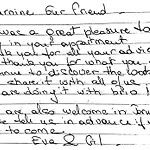 our friend
was a great pleasure to
in your appartment
you for all your advice
thank you for what you
to discover the
share it with all of us
are doing it with brio !
are also welcome in
tell us in advance if
to come.
Eva & G